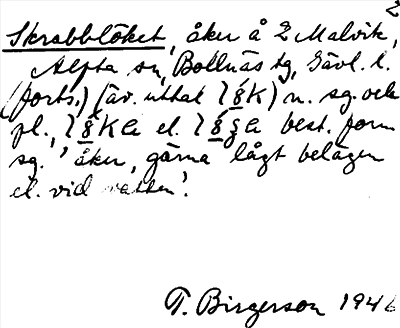 2
Skrabblöket, åker å 2 Malvik,
Alfta sn, Bollnäs tg, Gävl. l.
(forts.) (äv. uttal l K) n. sg. och
pl., l Ka el. l a best. form
sg. 'åker, gärna lågt belägen
el. vid vatten'.
T. Birgerson 1946